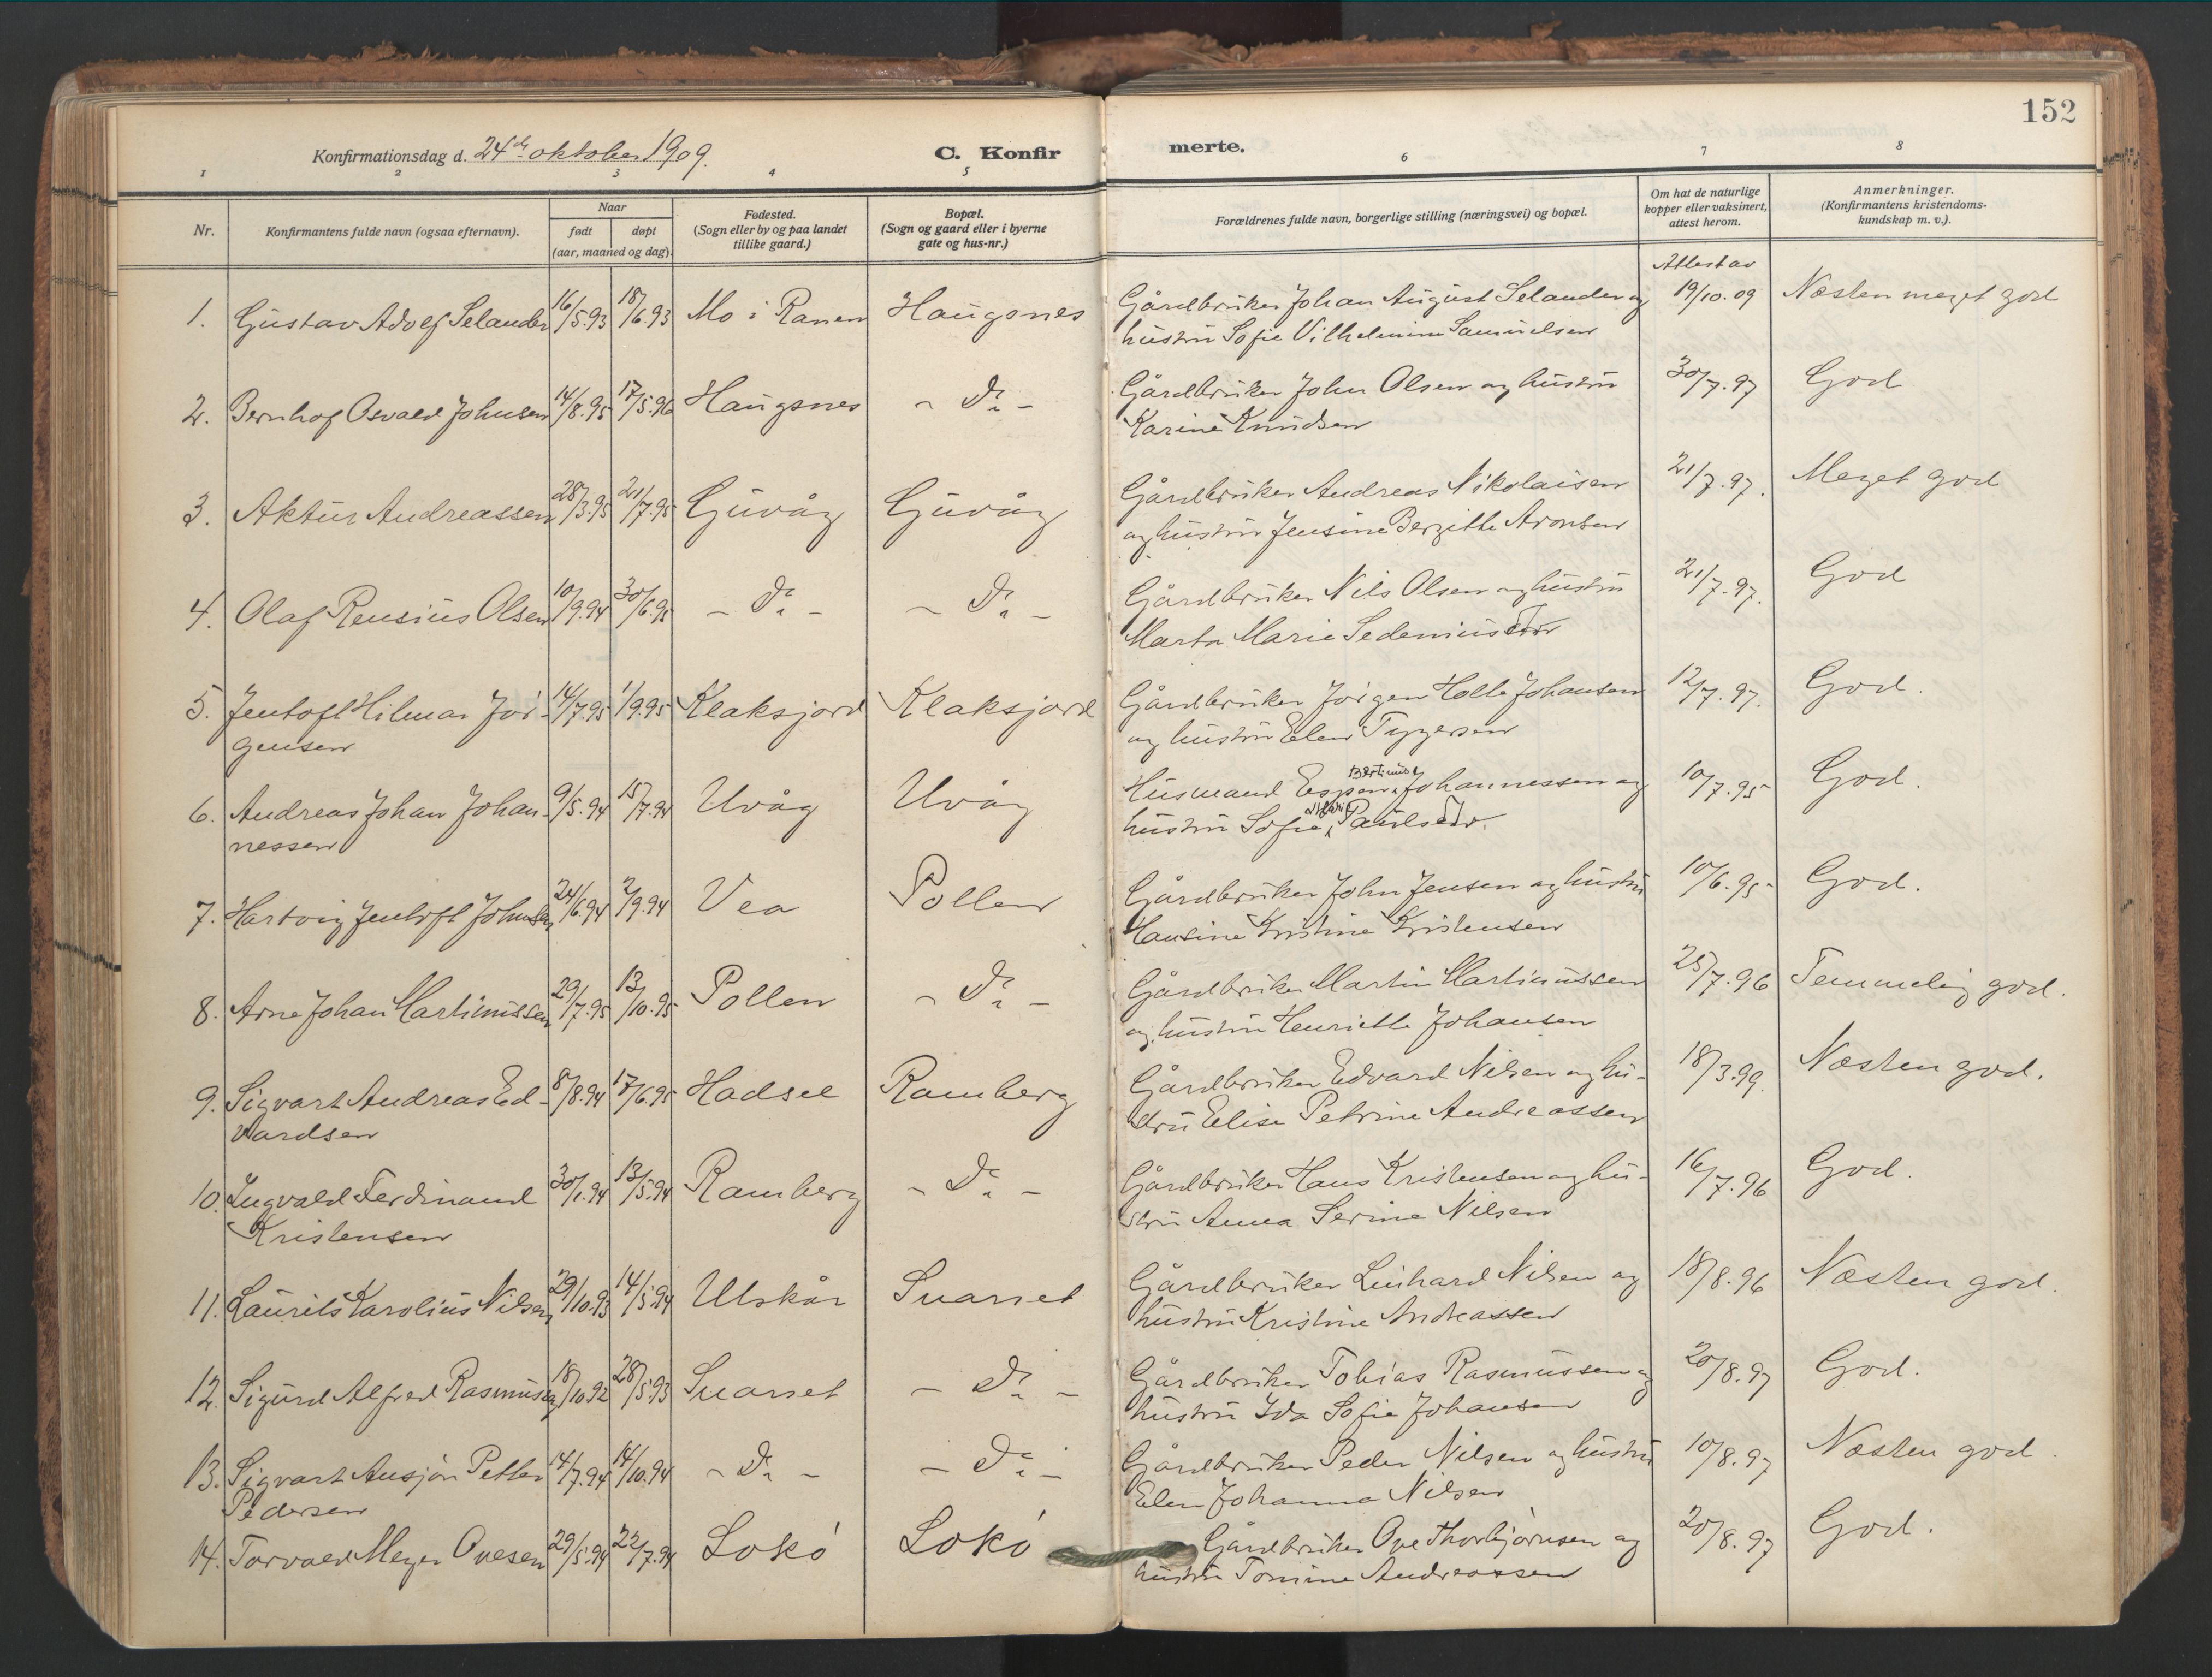 152
Konfirmationsdag d. 24de oktober 1909.
C. Konfirmerte.
1 2 3 4 5 6 7 8
Nr.
Konfirmantens fulde navn (ogsaa efternavn).
Naar
født døpt
(aar, maaned og dag).
Fødested.
(Sogn eller by og paa landet
tillike gaard.)
Bopæl.
(Sogn og gaard eller i byerne
gate og hus-nr.)
Forældrenes fulde navn, borgerlige stilling (næringsvei) og bopæl.
Om hat de naturlige
kopper eller vaksinert,
attest herom.
Anmerkninger.
(Konfirmantens kristendoms-
kundskap m. v.).
Attest av
1. Gustav Adolf Selander 16/5.93 18/6.93 Mo i Ranen Haugsnes Gårdbruker Johan August Selander og 19/10.09 Næsten meget god
hustru Sofie Vilhelmine Samuelsen
2. Bernhof Osvald Johnsen 14/8.95 17/5.96 Haugsnes - Do - Gårdbruker John Olsen og hustru 30/7.97 God
Karine Knudsen
3. Aktur Andreassen 28/3.95 21/7.95 Guvåg Guvåg Gårdbruker Andreas Nikolaisen 21/7.97. Meget god
og hustru Jensine Bergitte Arontsen
4. Olaf Rensius Olsen 10/9.94 30/6.95 - Do - - Do - Gårdbruker Nils Olsen og hustru 21/7.97. God
Marta Marie
5. Jentoft Hilmar Jør- 14/7.95 1/9.95 Klaksjord Klaksjord Gårdbruker Jørgen Holte Johansen 12/7.97. God.
gensen
og hustru Elen Tygersen
6. Andreas Johan Johan- 9/5.94 15/7.94 Uvåg Uvåg Husmand Espen Bertinus Johannessen og 10/7.95 God.
nessen
hustru Sofie Marie
7. Hartvig Jentoft Johnsen 24/6.94 2/9.94 Vea Pollen Gårdbruker John Jensen og hustru 10/6.95 God.
Hansine Kristine Kristensen
8. Arne Johan Martinussen 29/7.95 13/10.95 Pollen - Do - Gårdbruker Martin Martinussen 25/7.96 Temmelig god.
og hustru Henriette Johansen
9. Sigvart Andreas Ed- 8/8.94 17/6.95 Hadsel Ramberg Gårdbruker Edvard Nilsen og hu- 18/3.99. Næsten god.
vardsen
stru Elise Petrine Andreassen
10. Ingvald Ferdinand 30/1.94 13/5.94 Ramberg - Do - Gårdbruker Hans Kristensen og hu- 16/7.96 God.
Kristensen
stru Anna Serine Nilsen
11. Laurits Karolius Nilsen 29/10.93 14/5.94 Ulskår Suarset Gårdbruker Linhard Nilsen og 18/8.96 Næsten god.
hustru Kristine Andreassen
12. Sigurd Alfred Rasmussen 18/10.92 28/5.93 Suarset - Do - Gårdbruker Tobias Rasmussen og 20/8.97 God.
hustru Ida Sofie Johansen
13. Sigvart Ansjøn Petter 14/7.94 14/10.94 - Do - - Do - Gårdbruker Peder Nilsen og hustru 10/8.97 Næsten god.
Pedersen
Elen Johanna Nilsen
14. Torvald Meyer Ovesen 29/5.94 22/7.94 Lokø Lokø Gårdbruker Ove Thorbjørnsen og 20/8.97 God.
hustru Tomine Andreassen